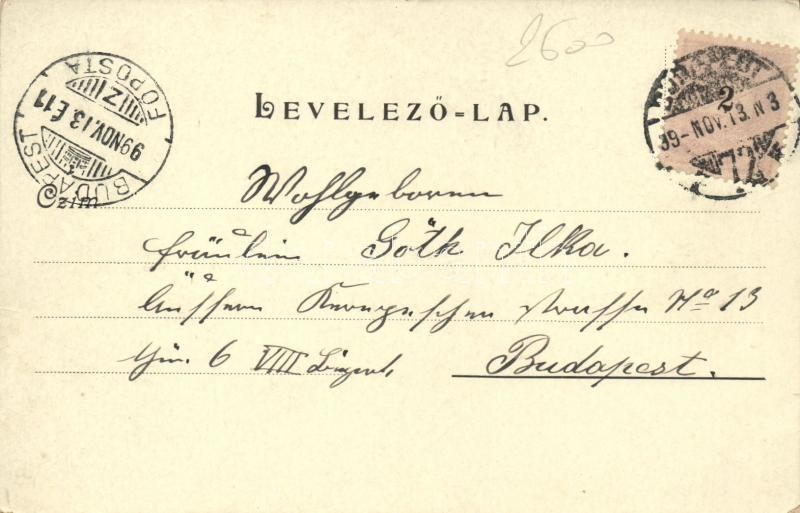 2600
LEVELEZŐ=LAP.
BUDAPEST
99 NOV. 13. É 11
FŐPOSTA
BUDAPEST
2
99 - NOV. 13. N 3
Czim
Wohlgeboren
Fräulein Góth Ilka.
Äussere Kerepescher strasse No 13
Thür. 6 VIII Bezirk,
Budapest.